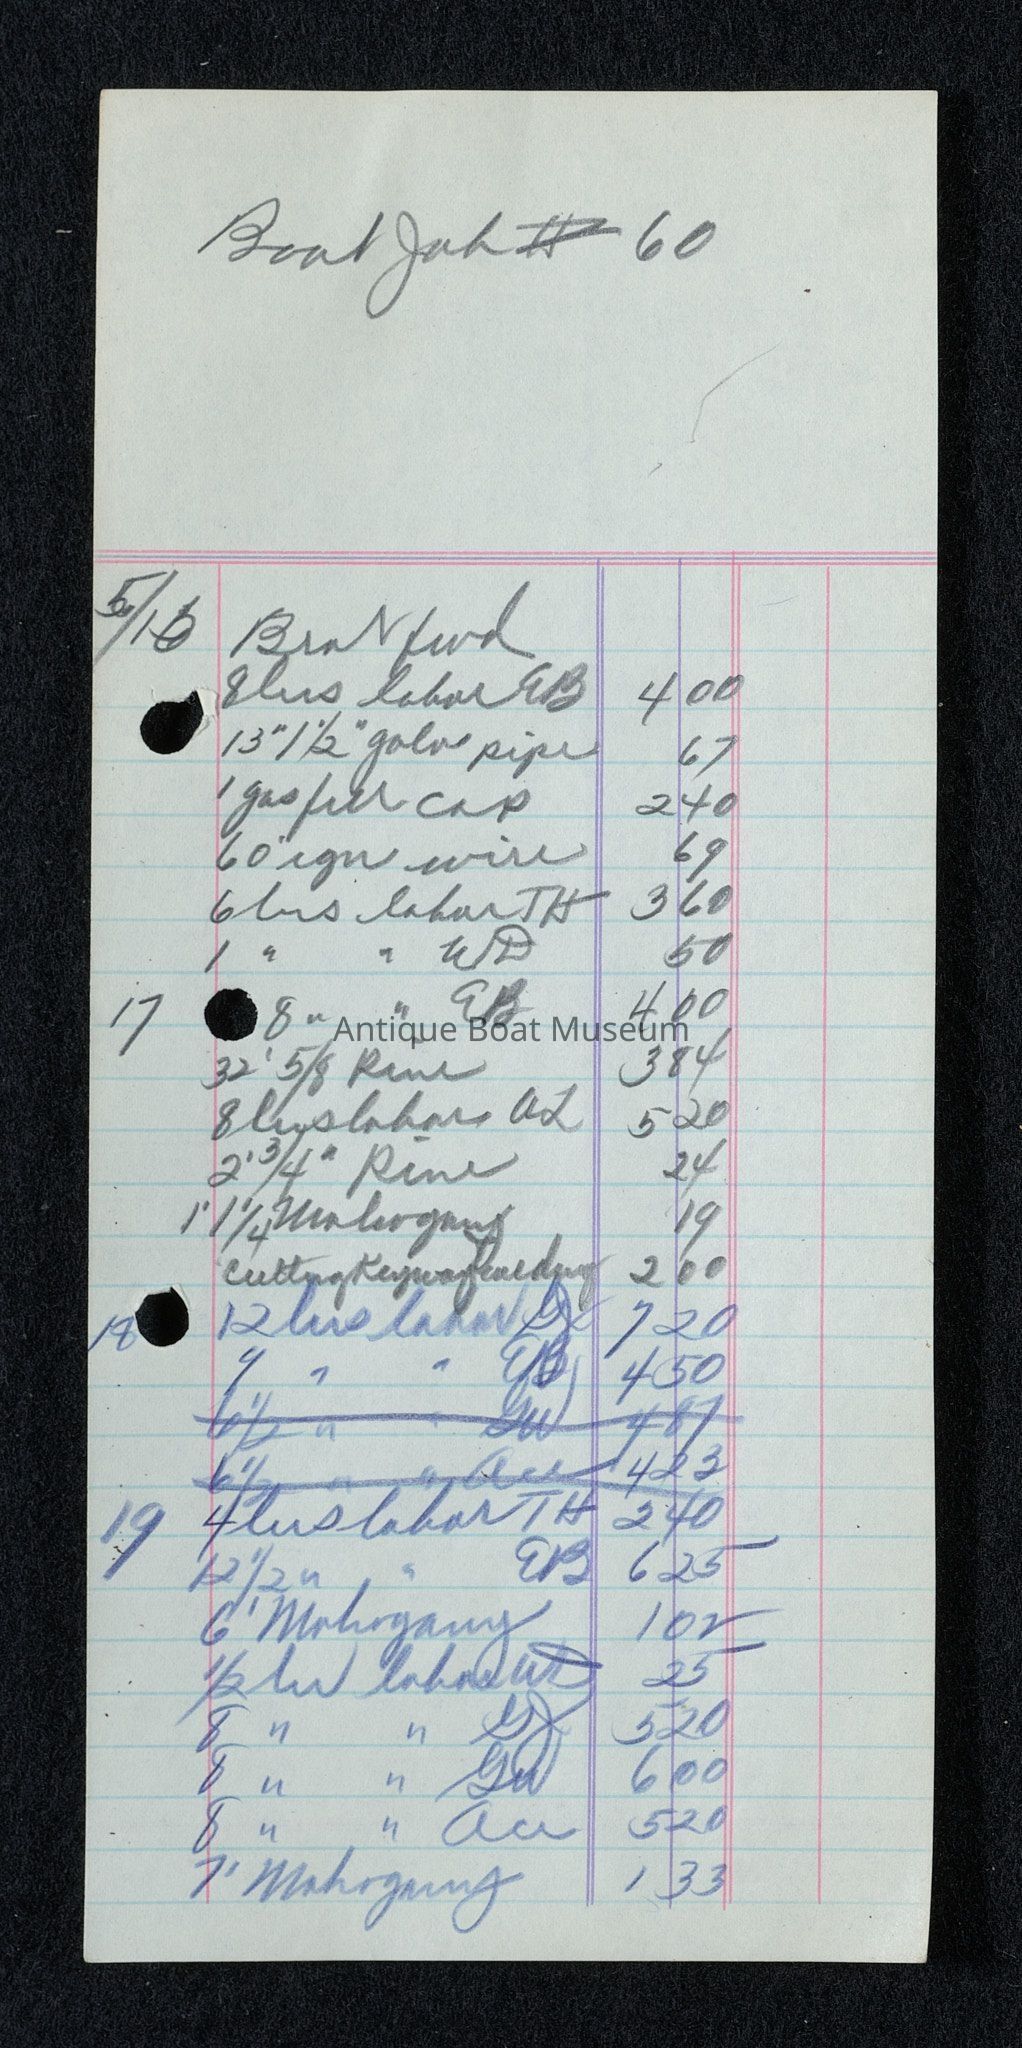 Boat Job # 60
5/16 Brot fwd
8 hrs labor EB 4 00
13" 1 1/2" galv pipe 67
1 gas fill cap 2 40
60" ign wire 69
6 hrs labor TH 3 60
1 " " WD 50
17 8 " " EB 4 00
Antique Boat Museum
32' 5/8 Pine 3 84
8 hrs labor AL 5 20
2' 3/4" Pine 24
1' 1 1/4 Mahogany 19
Cutting Keyway 2 00
18 12 hrs labor 7 20
9 " " EB 4 50
6 1/2 " " GW 4 87
6 1/2 " " Ace 4 23
19 4 hrs labor TH 2 40
12 1/2 " " EB 6 25
6' Mahogany 1 02
1/2 hr labor WD 25
8 " " 5 20
8 " " GW 6 00
8 " " Ace 5 20
7' Mahogany 1 33